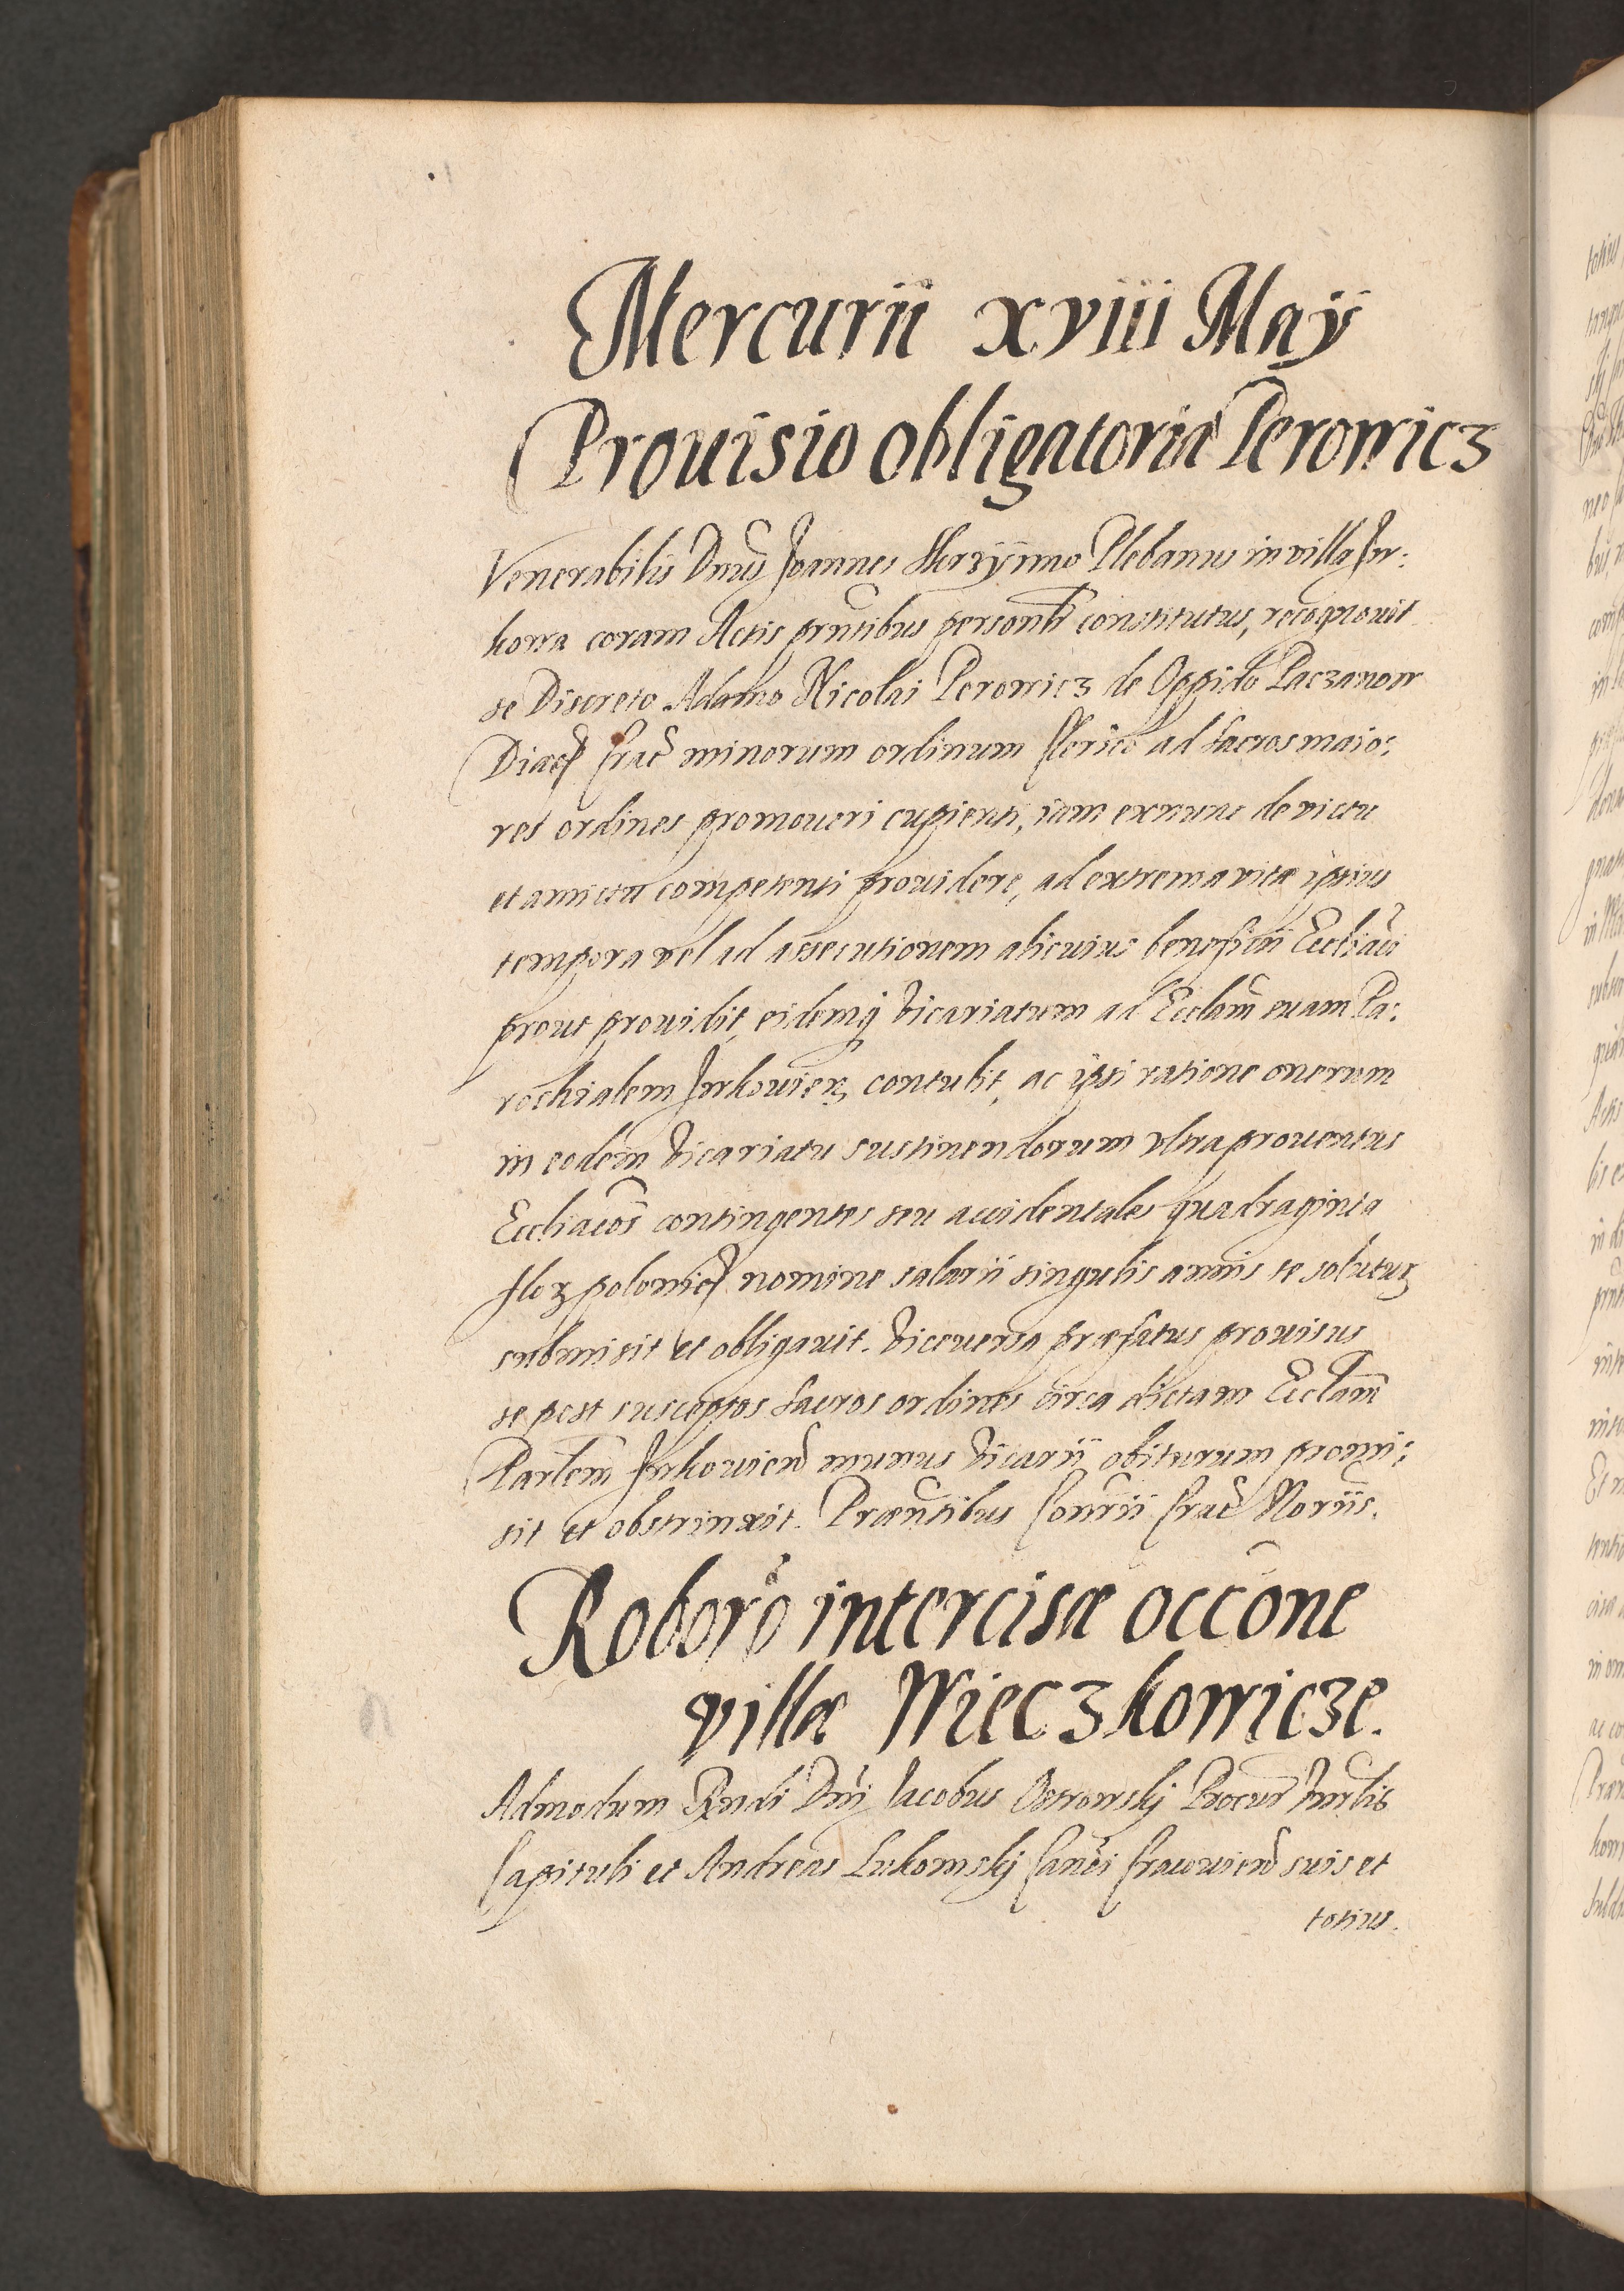 Mercurii xviii Maÿ
Prouisio obligatoria Peronicz
Venerabilis Dnus Joannes Skrzÿnno Plebanus in villa Jr:
kowa coram Actis prntibus personlr constitutus, recognouit
se Discreto Adamo Nicolai Peronicz de Oppido Paczanow
Diaec Crac minorum ordinum Clerico ad sacros maio:
res ordines promoueri cupienti, iam exnunc de victu
et amictu competenti prouidere, ad extrema vitæ ipsius
tempora vel ad assecutionem alicuius beneficii Eccliaci
prout prouidit, eidemq vicariatum ad Ecclam suam Pa:
rochialem Jrkouien contulit, ac ipsi ratione onerum
in eodem vicariatu sustinendorum vltra prouentus
Eccliacos contingentes seu accidentales quadraginta
flor polonic nomine salarii singulis annis se soluturum
submisit et obligauit. Viceuersa præfatus prouisus
se post susceptos sacros ordines circa dictam Ecclam
Parlem Jrkouien munus vicarii obiturum promi:
sit et obstrinxit. Præntibus Connrii Crac Noriis.
Roboro intercisæ occone
villæ Wieczkowicze.
Admodum Rndi Dni Jacobus Ostrowskj Procur Gnrlis
Capituli et Andreas Lukomskj Canci Cracouien suis et
totius.